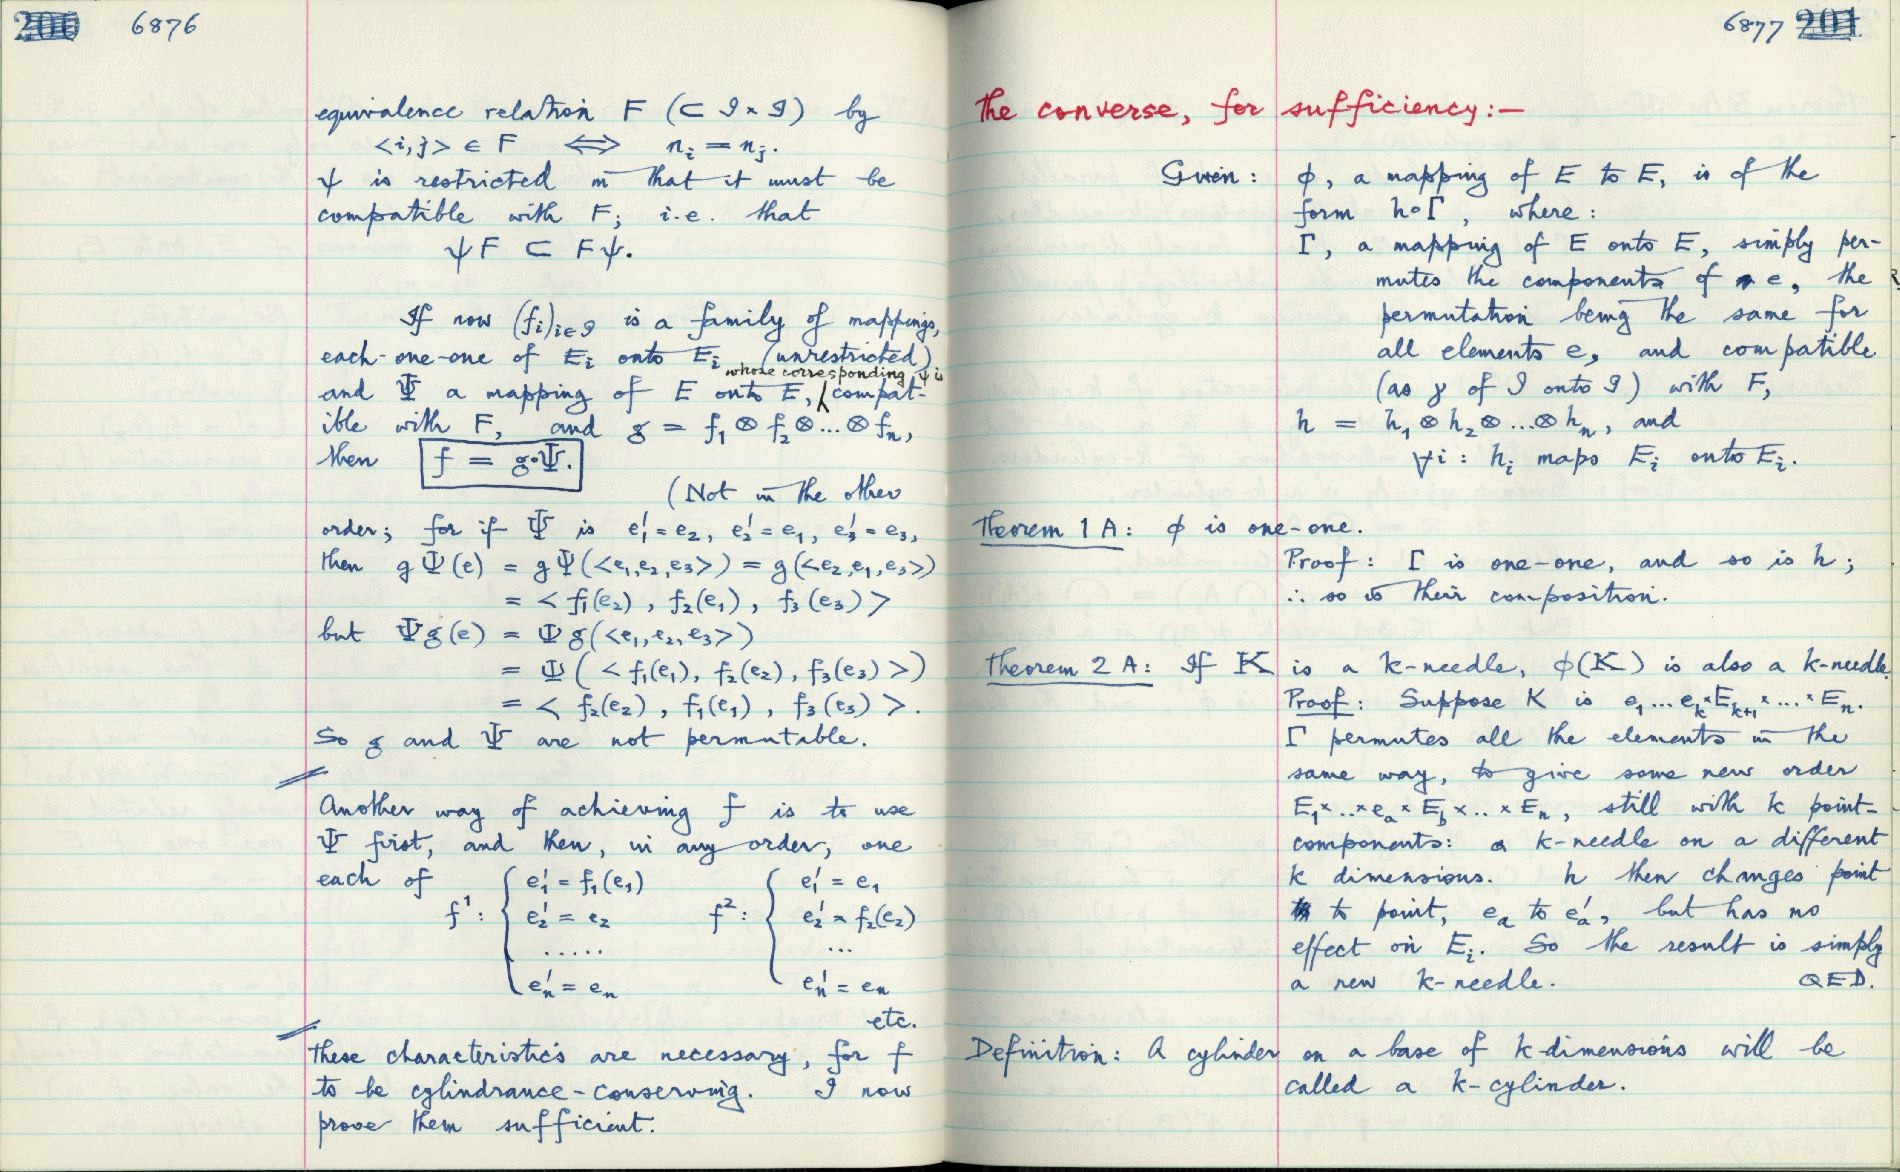 200 6876
equivalence relation F (⊂ I × I) by
<i,j> ∈ F ⟺ nᵢ = nⱼ.
ψ is restricted in that it must be
compatible with F; i.e. that
ψF ⊂ Fψ.
If now (fᵢ)ᵢ∈I is a family of mappings,
each one-one of Eᵢ onto Eᵢ (unrestricted)
whose corresponding ψ is
and Ψ a mapping of E onto E, compat-
ible with F, and g = f₁ ⊗ f₂ ⊗ ... ⊗ fₙ,
then f = g∘Ψ.
(Not in the other
order; for if Ψ is e₁' = e₂, e₂' = e₁, e₃' = e₃,
then gΨ(e) = gΨ(<e₁,e₂,e₃>) = g(<e₂,e₁,e₃>)
= < f₁(e₂), f₂(e₁), f₃(e₃) >
but Ψg(e) = Ψg(<e₁,e₂,e₃>)
= Ψ( < f₁(e₁), f₂(e₂), f₃(e₃) >)
= < f₂(e₂), f₁(e₁), f₃(e₃) >.
So g and Ψ are not permutable.
Another way of achieving f is to use
Ψ first, and then, in any order, one
each of
f¹: { e₁' = f₁(e₁) f²: { e₁' = e₁
e₂' = e₂ e₂' = f₂(e₂)
..... ...
eₙ' = eₙ eₙ' = eₙ
etc.
These characteristics are necessary, for f
to be cylindrance-conserving. I now
prove them sufficient.
6877 201
The converse, for sufficiency:—
Given: φ, a mapping of E to E, is of the
form h∘Γ, where:
Γ, a mapping of E onto E, simply per-
mutes the components of e, the
permutation being the same for
all elements e, and compatible
(as γ of I onto I) with F,
h = h₁ ⊗ h₂ ⊗ ... ⊗ hₙ, and
∀i: hᵢ maps Eᵢ onto Eᵢ.
Theorem 1A: φ is one-one.
Proof: Γ is one-one, and so is h;
∴ so is their composition.
Theorem 2A: If K is a k-needle, φ(K) is also a k-needle.
Proof: Suppose K is e₁ ... eₖ × Eₖ₊₁ × ... × Eₙ.
Γ permutes all the elements in the
same way, to give some new order
E₁ × .. × eₐ × E_b × .. × Eₙ, still with k point-
components: a k-needle on a different
k dimensions. h then changes point
to point, eₐ to eₐ', but has no
effect on Eᵢ. So the result is simply
a new k-needle. QED.
Definition: A cylinder on a base of k-dimensions will be
called a k-cylinder.